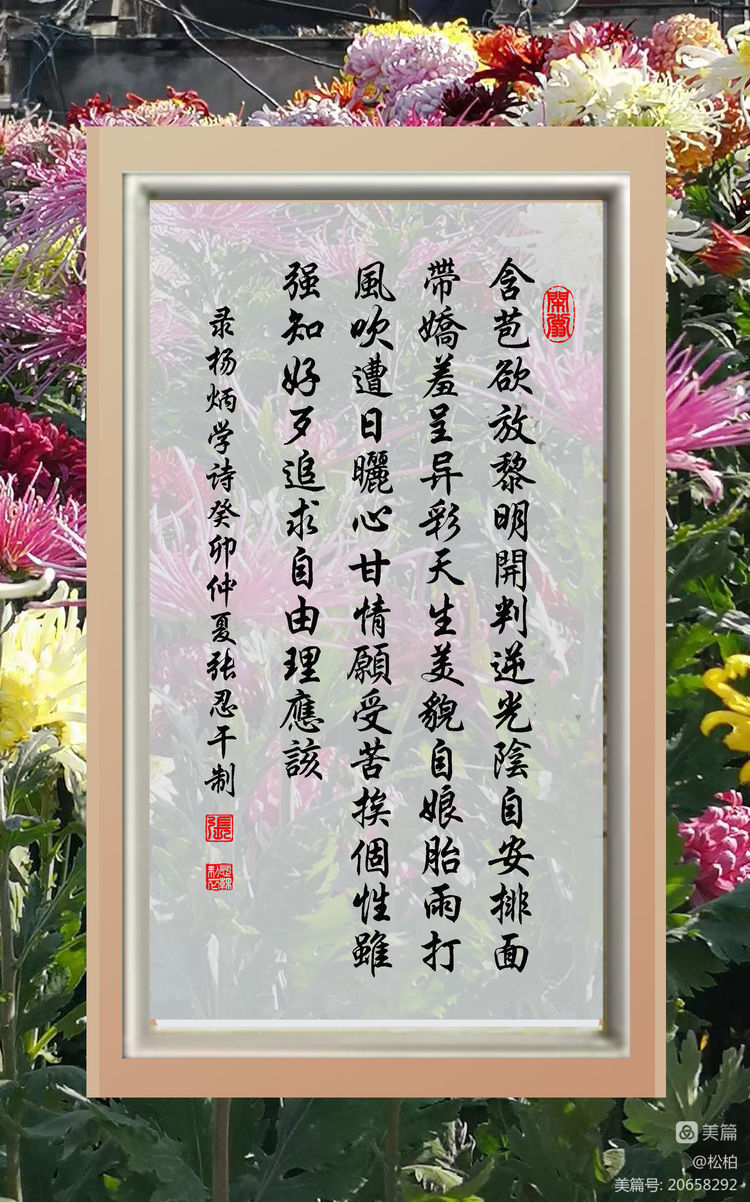 含苞欲放黎明開判逆光陰自安排面
帶嬌羞呈异彩天生美貌自娘胎雨打
風吹遭日曬心甘情願受苦挨個性雖
强知好歹追求自由理應該
录杨炳学诗癸卯仲夏张忍干制
張
美篇
@松柏
美篇号: 20658292